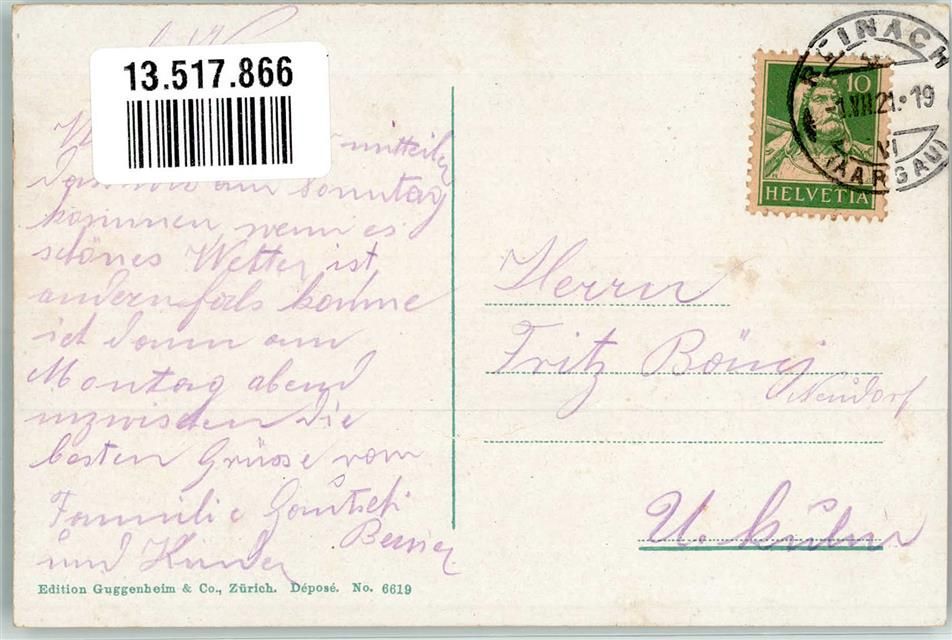 13.517.866
mitteilen
dass wir am Sonntag
kommen, wenn es
schönes Wetter ist,
andernfals komme
ich dann am
Montag abend
inzwischen die
besten Grüsse vom
Familie Gautschi
Berner
und Kinder
Edition Guggenheim & Co., Zürich. Déposé. No. 6619
REINACH
(AARGAU)
-1.VII.21.-19
VI
10
HELVETIA
Herrn
Fritz
Neudorf
U. Kulm